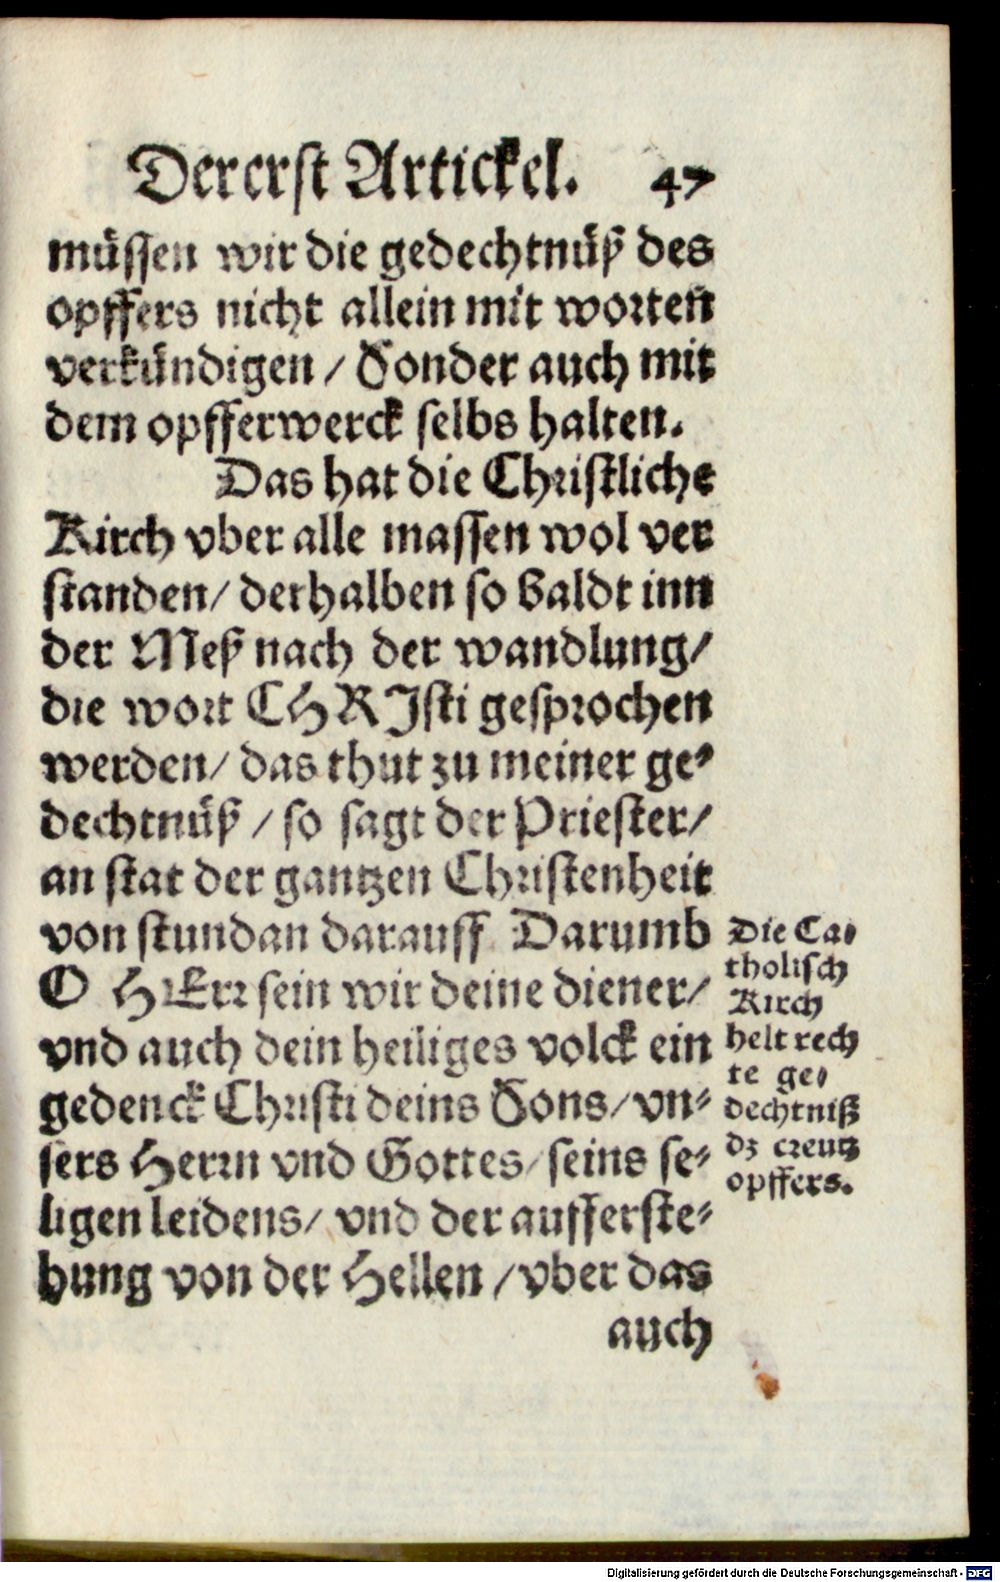 Der erst Artickel. 47
müssen wir die gedechtnüß des
opffers nicht allein mit worten
verkündigen / Sonder auch mit
dem opfferwerck selbs halten.
Das hat die Christliche
Kirch vber alle massen wol ver
standen / derhalben so baldt inn
der Meß nach der wandlung /
die wort CHRJsti gesprochen
werden / das thut zu meiner ge-
dechtnüß / so sagt der Priester /
an stat der gantzen Christenheit
von stundan darauff Darumb
O HErr sein wir deine diener /
vnd auch dein heiliges volck ein
gedenck Christi deins Sons / vn-
sers Herrn vnd Gottes / seins se-
ligen leidens / vnd der aufferste-
hung von der Hellen / vber das
auch
Die Ca-
tholisch
Kirch
helt rech
te ge-
dechtniß
dz creutz
opffers.
Digitalisierung gefördert durch die Deutsche Forschungsgemeinschaft - DFG